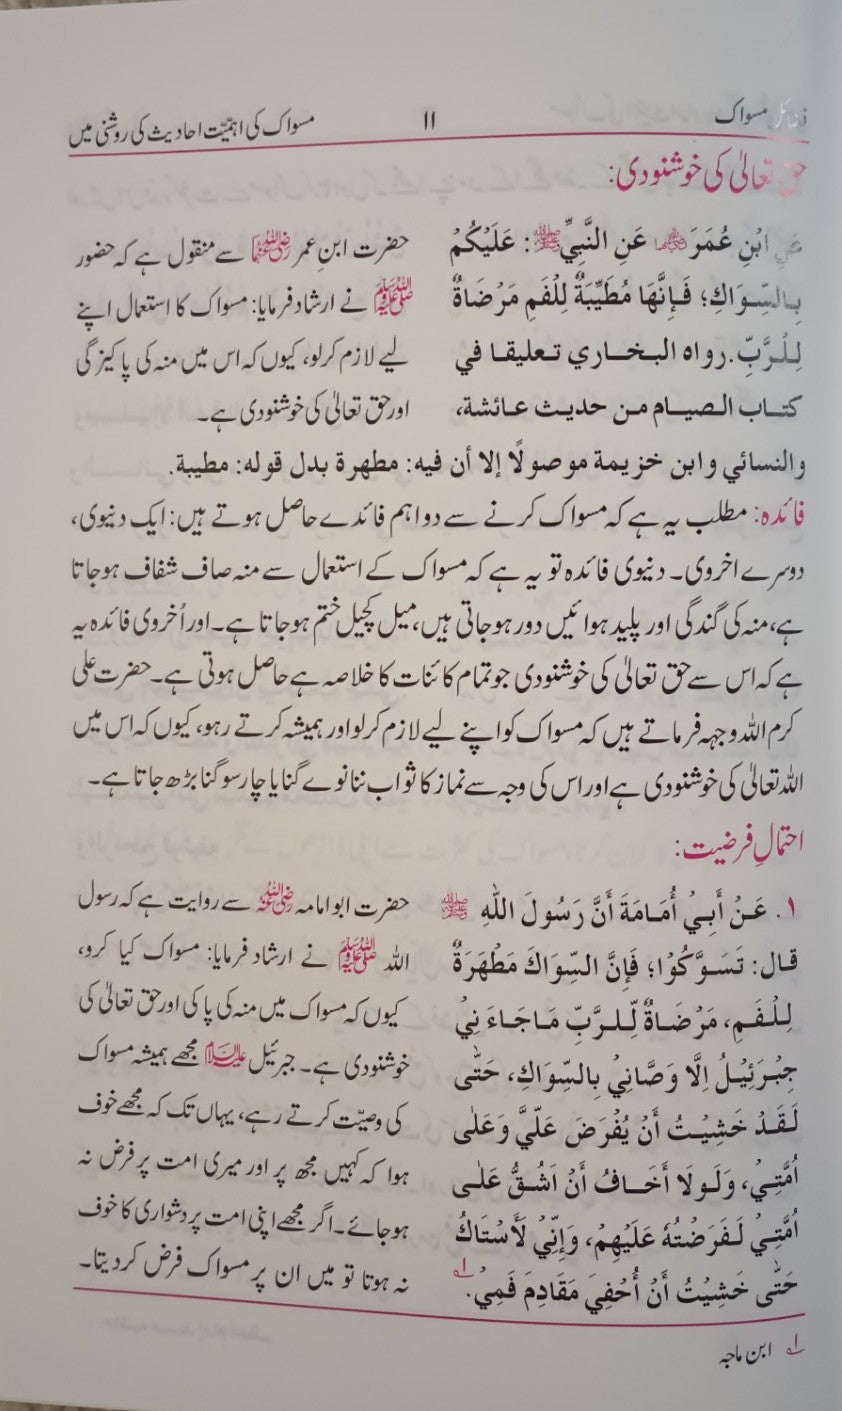 فضائل مسواک
۱۱
مسواک کی اہمیّت احادیث کی روشنی میں
حق تعالیٰ کی خوشنودی:
عَنِ ابْنِ عُمَرَ رضي الله عنهما عَنِ النَّبِيِّ ﷺ: عَلَيْكُمْ
بِالسِّوَاكِ؛ فَإِنَّهَا مُطَيِّبَةٌ لِلْفَمِ مَرْضَاةٌ
لِلرَّبِّ. رواه البخاري تعليقا في
كتاب الصيام من حديث عائشة،
والنسائي وابن خزيمة موصولًا إلا أن فيه: مطهرة بدل قوله: مطيبة.
حضرت ابنِ عمر رضی اللہ عنہما سے منقول ہے کہ حضور
ﷺ نے ارشاد فرمایا: مسواک کا استعمال اپنے
لیے لازم کرلو، کیوں کہ اس میں منہ کی پاکیزگی
اور حق تعالیٰ کی خوشنودی ہے۔
فائدہ: مطلب یہ ہے کہ مسواک کرنے سے دو اہم فائدے حاصل ہوتے ہیں: ایک دنیوی،
دوسرے اخروی۔ دنیوی فائدہ تو یہ ہے کہ مسواک کے استعمال سے منہ صاف شفاف ہوجاتا
ہے، منہ کی گندگی اور پلید ہوائیں دور ہوجاتی ہیں، میل کچیل ختم ہوجاتا ہے۔ اور اُخروی فائدہ یہ
ہے کہ اس سے حق تعالیٰ کی خوشنودی جو تمام کائنات کا خلاصہ ہے حاصل ہوتی ہے۔ حضرت علی
کرم اللہ وجہہ فرماتے ہیں کہ مسواک کو اپنے لیے لازم کرلو اور ہمیشہ کرتے رہو، کیوں کہ اس میں
اللہ تعالیٰ کی خوشنودی ہے اور اس کی وجہ سے نماز کا ثواب ننانوے گنا یا چار سو گنا بڑھ جاتا ہے۔
احتمالِ فرضیت:
۱. عَنْ أَبِيْ أُمَامَةَ أَنَّ رَسُولَ اللّٰهِ ﷺ
قال: تَسَوَّكُوْا؛ فَإِنَّ السِّوَاكَ مَطْهَرَةٌ
لِلْفَمِ، مَرْضَاةٌ لِّلرَّبِّ مَا جَاءَ نِيْ
جِبْرَئِيْلُ إِلَّا وَصَّانِيْ بِالسِّوَاكِ، حَتّٰى
لَقَدْ خَشِيْتُ أَنْ يُفْرَضَ عَلَيَّ وَعَلٰى
اُمَّتِيْ، وَلَولَا أَخَافُ أَنْ اَشُقُّ عَلٰى
اُمَّتِيْ لَفَرَضْتُهٗ عَلَيْهِمْ، وَإِنِّيْ لَأَسْتَاكُ
حَتّٰى خَشِيْتُ أَنْ أُحْفِيَ مَقَادِمَ فَمِيْ.۱
حضرت ابو امامہ رضی اللہ عنہ سے روایت ہے کہ رسول
اللہ ﷺ نے ارشاد فرمایا: مسواک کیا کرو،
کیوں کہ مسواک میں منہ کی پاکی اور حق تعالیٰ کی
خوشنودی ہے۔ جبرئیل علیہ السلام مجھے ہمیشہ مسواک
کی وصیّت کرتے رہے، یہاں تک کہ مجھے خوف
ہوا کہ کہیں مجھ پر اور میری امت پر فرض نہ
ہوجائے۔ اگر مجھے اپنی امت پر دشواری کا خوف
نہ ہوتا تو میں ان پر مسواک فرض کردیتا۔
۱ ابن ماجہ